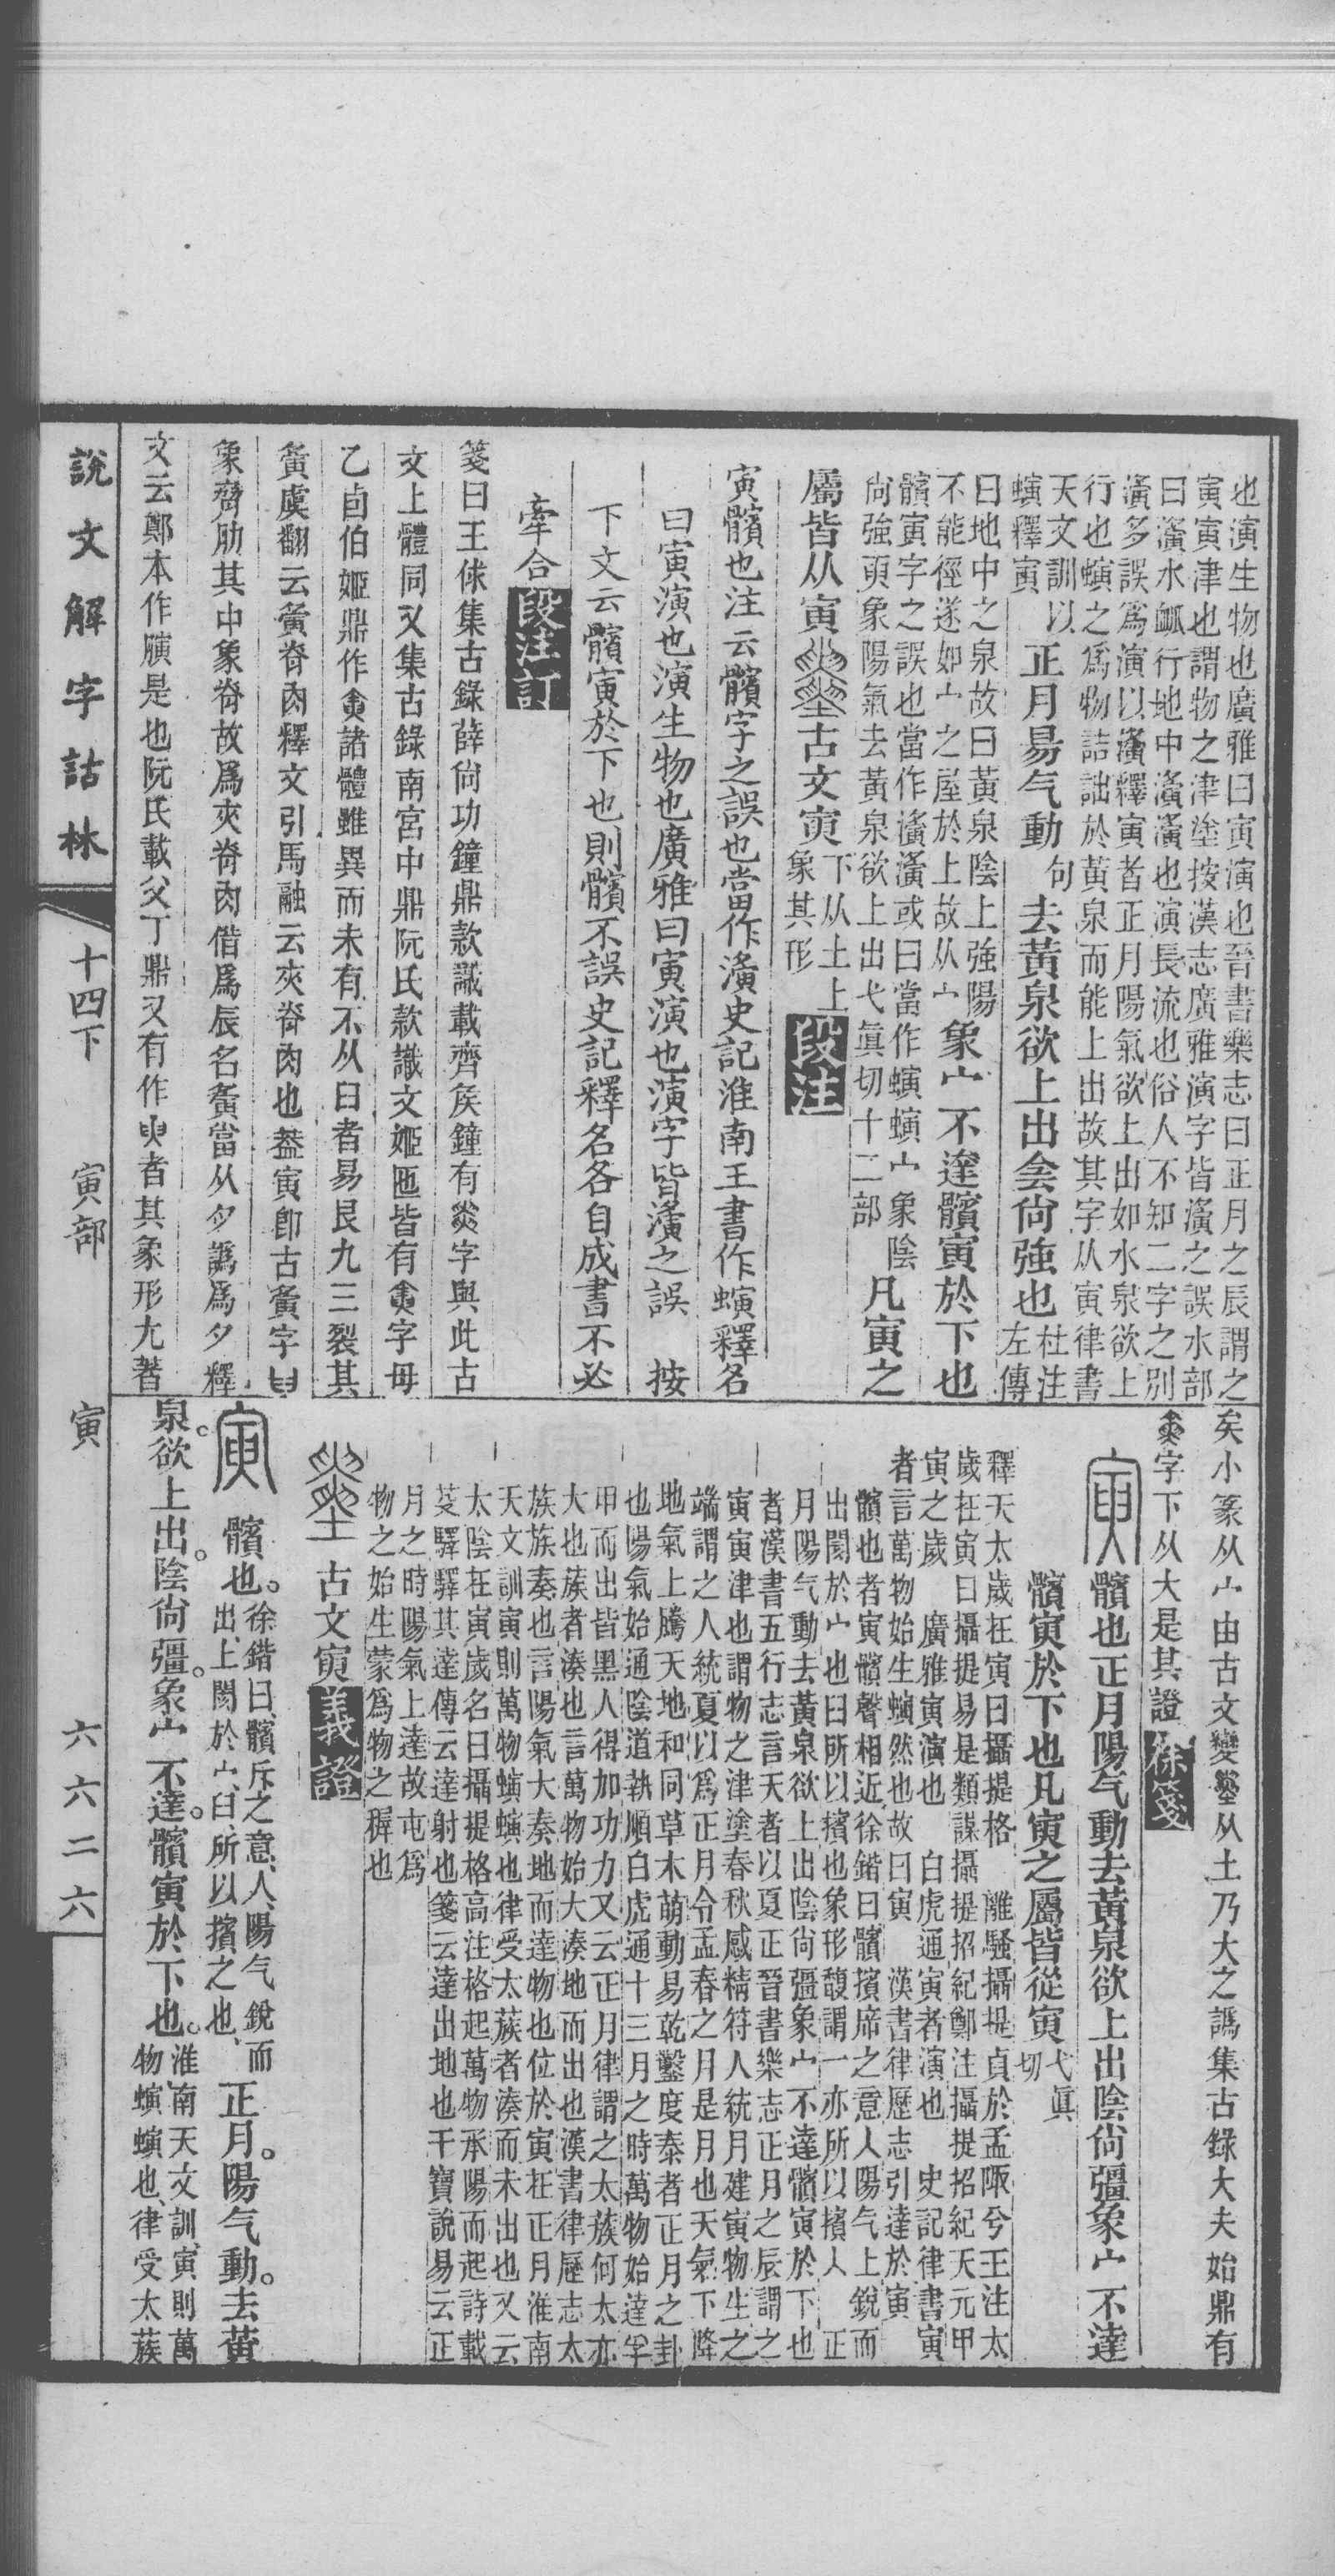 也演生物也廣雅曰寅演也晉書樂志曰正月之辰謂之
寅寅津也謂物之津塗按漢志廣雅演字皆濥之誤水部
曰濥水衇行地中濥濥也演長流也俗人不知二字之別
濥多誤爲演以濥釋寅者正月陽氣欲上出如水泉欲上
行也螾之爲物詰詘於黃泉而能上出故其字从寅律書
天文訓以
螾釋寅
正月昜气動
句
去黃泉欲上出侌尙強也
杜注
左傳
曰地中之泉故曰黃泉陰上強陽
不能徑遂如宀之屋於上故从宀
象宀不達髕寅於下也
髕寅字之誤也當作濥濥或曰當作螾螾宀象陰
尙強𠕒象陽氣去黃泉欲上出弋眞切十二部
凡寅之
屬皆从寅
古文寅
下从土上
象其形
段注
寅髕也注云髕字之誤也當作濥史記淮南王書作螾釋名
曰寅演也演生物也廣雅曰寅演也演字皆濥之誤　按
下文云髕寅於下也則髕不誤史記釋名各自成書不必
牽合
段注訂
箋曰王俅集古錄薛尙功鐘鼎款識載齊矦鐘有
字與此古
文上體同又集古錄南宮中鼎阮氏款識文姬匜皆有
字母
乙卣伯姬鼎作
諸體雖異而未有不从𦥑者易艮九三裂其
夤虞翻云夤脊肉釋文引馬融云夾脊肉也葢寅卽古夤字
象齊肋其中象脊故爲夾脊肉借爲辰名夤當从夕譌爲夕釋
文云鄭本作䐜是也阮氏載父丁鼎又有作
者其象形尢著
矣小篆从宀由古文變
从土乃大之譌集古錄大夫始鼎有
字下从大是其證
徐箋
髕也正月陽气動去黃泉欲上出陰尙彊象宀不達
髕寅於下也凡寅之屬皆從寅
弋眞
切
釋天太歲在寅曰攝提格　離騷攝提貞於孟陬兮王注太
歲在寅曰攝提易是類謀攝提招紀鄭注攝提招紀天元甲
寅之歲　廣雅寅演也　白虎通寅者演也　史記律書寅
者言萬物始生螾然也故曰寅　漢書律歷志引達於寅
髕也者寅髕聲相近徐鍇曰髕擯庍之意人陽气上銳而
出閡於宀也𦥑所以擯也象形馥謂一亦所以擯人　正
月陽气動去黃泉欲上出陰尙彊象宀不達髕寅於下也
者漢書五行志言天者以夏正晉書樂志正月之辰謂之
寅寅津也謂物之津塗春秋感精符人統月建寅物生之
端謂之人統夏以爲正月令孟春之月是月也天氣下降
地氣上騰天地和同草木萌動易乾鑿度泰者正月之卦
也陽氣始通陰道執順白虎通十三月之時萬物始達孚
甲而出皆黑人得加功力又云正月律謂之太蔟何太亦
大也蔟者湊也言萬物始大湊地而出也漢書律歷志太
族族奏也言陽氣大奏地而達物也位於寅在正月淮南
天文訓寅則萬物螾螾也律受太蔟者湊而未出也又云
太陰在寅歲名曰攝提格高注格起萬物承陽而起詩載
芟驛驛其達傳云達射也箋云達出地也干寶說易云正
月之時陽氣上達故屯爲
物之始生蒙爲物之穉也
古文寅
義證
髕也。
徐鍇曰、髕斥之意、人、陽气銳而
出、上閡於宀、臼、所以擯之也、
正月。陽气動。去黃
泉。欲上出。陰尙彊。象宀不達。髕寅於下也。
淮南天文訓、寅則萬
物螾螾也、律受太蔟
說文解字詁林
十四下
寅部
寅
六六二六